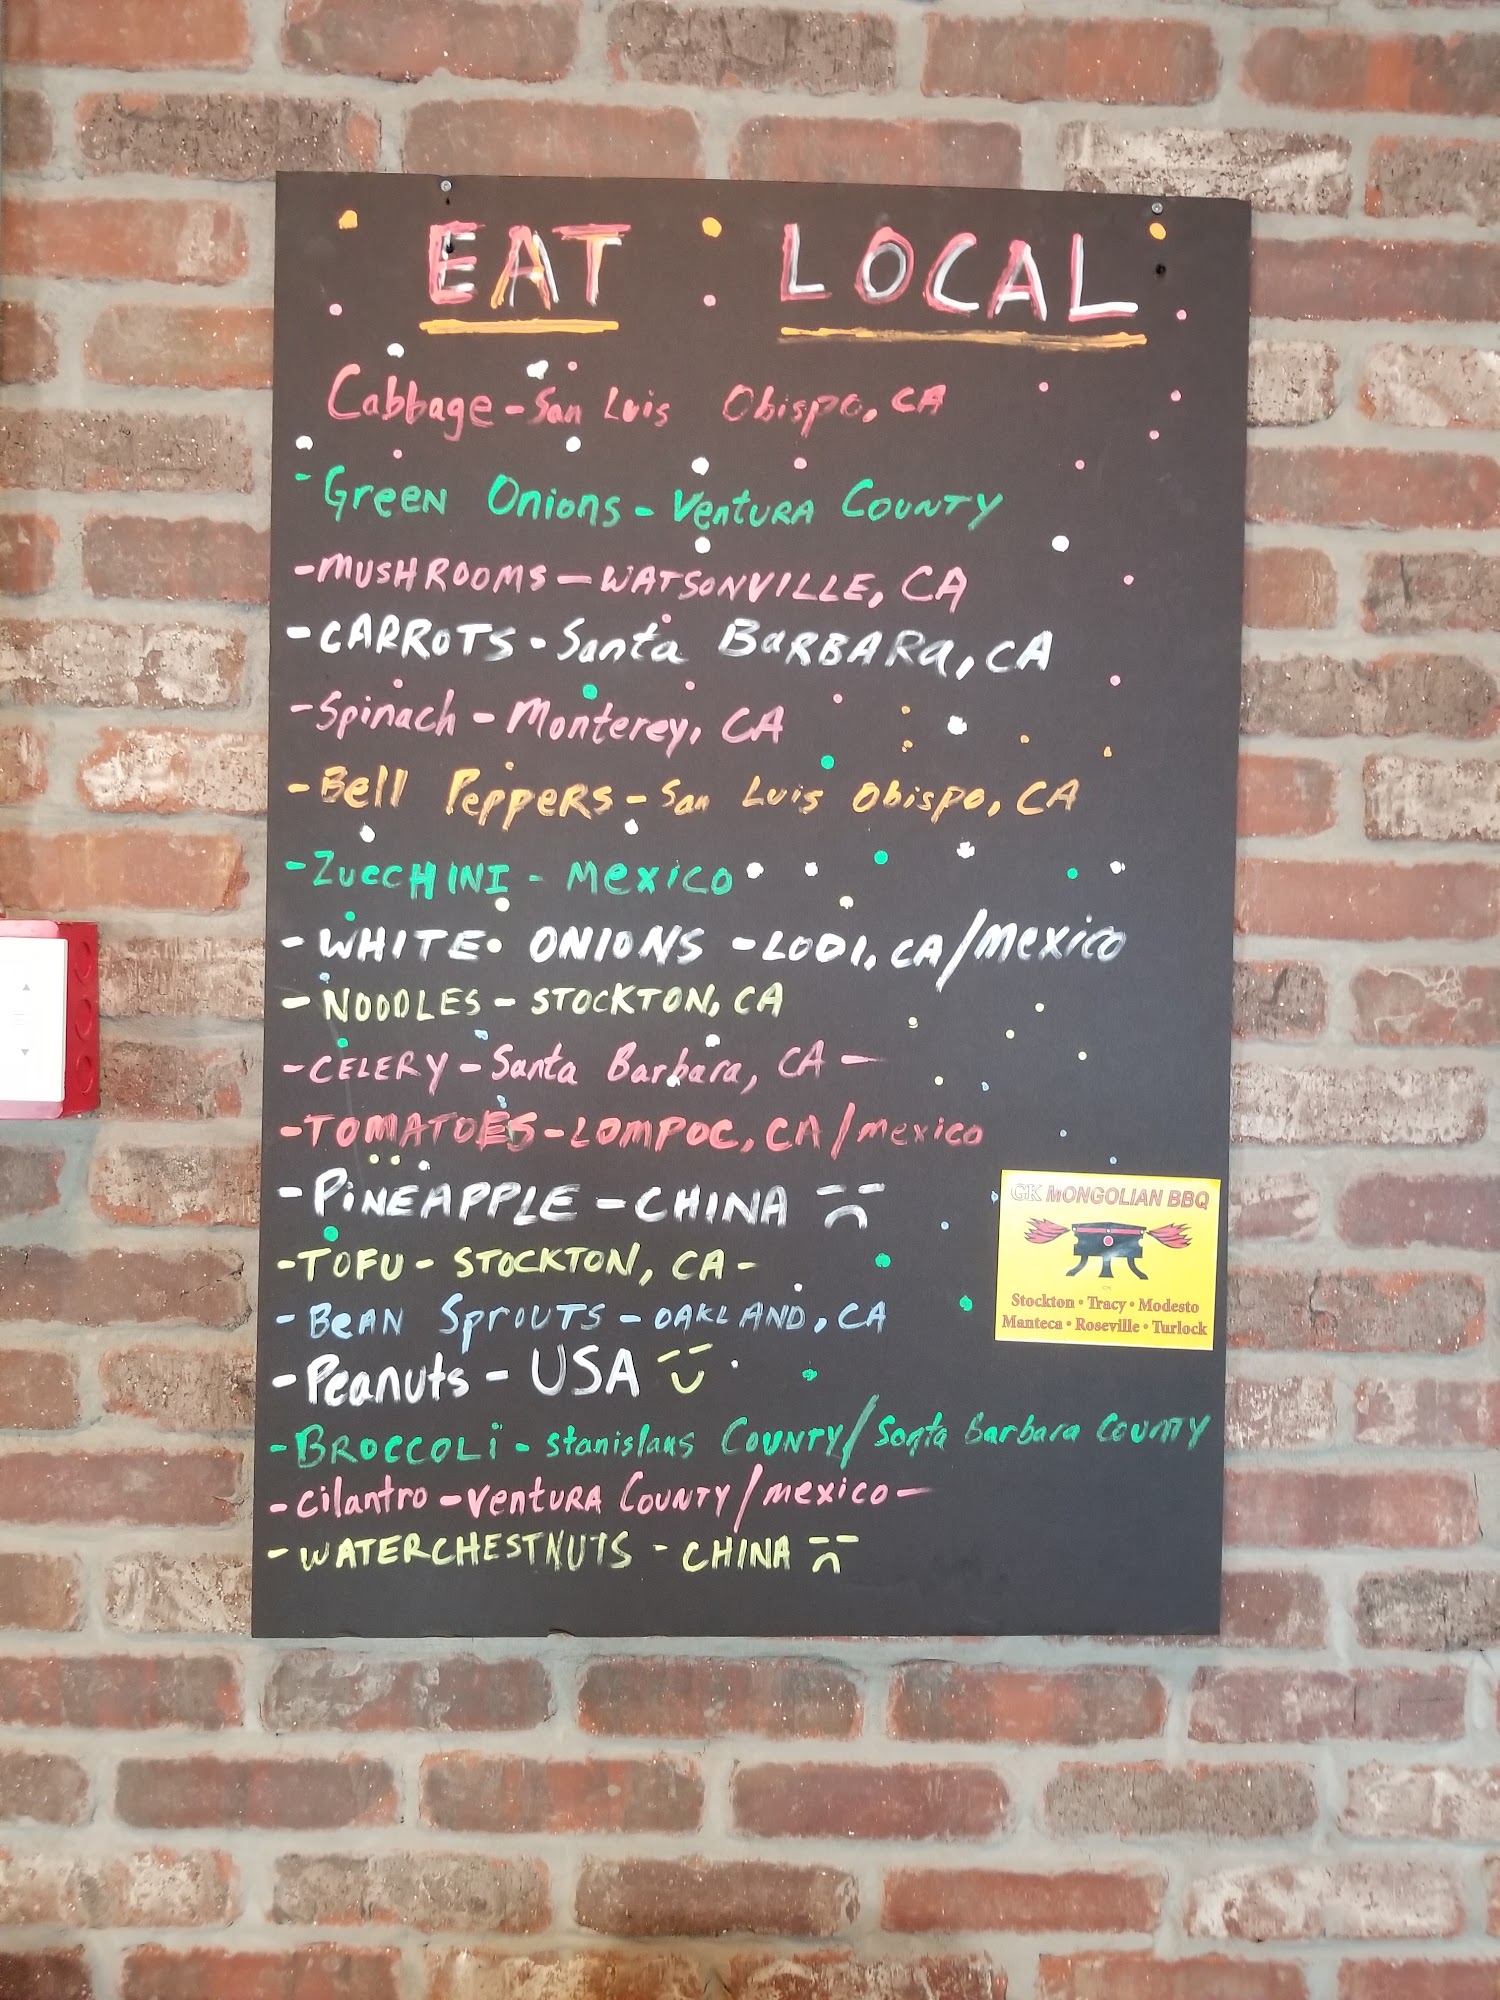 EAT LOCAL
Cabbage - San Luis Obispo, CA
- Green Onions - Ventura County
- MUSHROOMS - WATSONVILLE, CA
- CARROTS - Santa BARBARA, CA
- Spinach - Monterey, CA
- Bell Peppers - San Luis Obispo, CA
- ZuccHINI - Mexico
- WHITE ONIONS - LODI, CA/Mexico
- NOODLES - STOCKTON, CA
- CELERY - Santa Barbara, CA -
- TOMATOES - LOMPOC, CA/mexico
- PiNEAPPLE - CHINA
- TOFU - STOCKTON, CA -
- BeAN SprOUTS - OAKLAND, CA
- Peanuts - USA
- BROCCOLi - stanislaus COUNTY/Santa Barbara COUNTY
- cilantro - ventura County/mexico -
- WATERCHESTNUTS - CHINA
GK MONGOLIAN BBQ
Stockton • Tracy • Modesto
Manteca • Roseville • Turlock